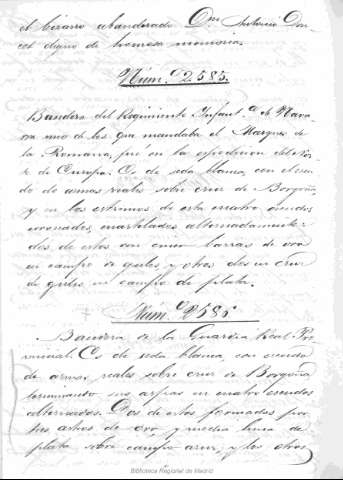 el bizarro abanderado Don Antonio
del diario de honrosa memoria.
Núm.º 2.585.
Bandera del Regimiento Infant.ª de Nava
rra uno de los que mandaba el Marques de
la Romana, fué en la espedicion del Nor
te de Europa. Es de seda blanca, con escu
do de armas reales sobre cruz de Borgoña,
y en los estremos de esta cuatro escudos
coronados, cuartelados alternadamente:
dos de estos con cinco barras de oro
en campo de gules, y otros dos en cruz
de gules en campo de plata.
Núm.º 2585
Bandera de la Guardia Real Pro
vincial. Es de seda blanca, con escudo
de armas reales sobre cruz de Borgoña
terminando sus aspas en cuatro escudos
alternados. Dos de estos formados por
tres de oro y media luna de
plata sobre campo azul, y los otros
Biblioteca Regional de Madrid